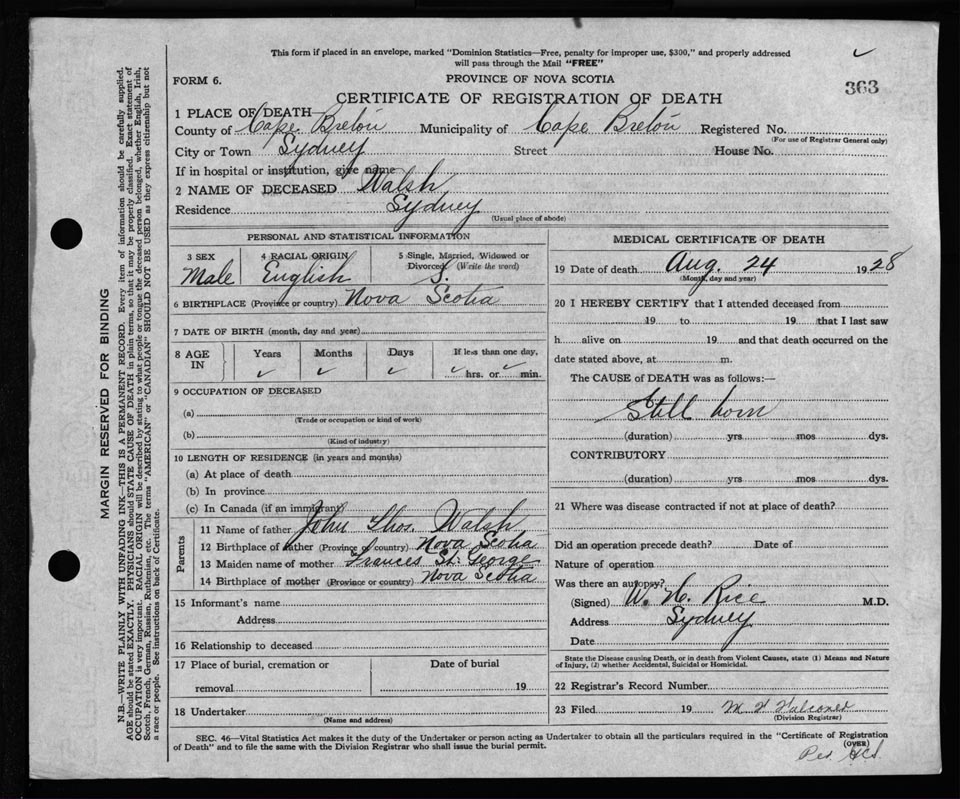 This form if placed in an envelope, marked "Dominion Statistics—Free, penalty for improper use, $300," and properly addressed
will pass through the Mail "FREE"
FORM 6.
PROVINCE OF NOVA SCOTIA
363
CERTIFICATE OF REGISTRATION OF DEATH
1 PLACE OF DEATH
County of Cape Breton Municipality of Cape Breton Registered No.
(For use of Registrar General only)
City or Town Sydney Street House No.
If in hospital or institution, give name
2 NAME OF DECEASED Walsh
Residence Sydney
(Usual place of abode)
PERSONAL AND STATISTICAL INFORMATION
3 SEX 4 RACIAL ORIGIN 5 Single, Married, Widowed or
Divorced (Write the word)
Male English S.
6 BIRTHPLACE (Province or country) Nova Scotia
7 DATE OF BIRTH (month, day and year)
8 AGE IN Years Months Days If less than one day,
hrs. or min.
9 OCCUPATION OF DECEASED
(a)
(Trade or occupation or kind of work)
(b)
(Kind of industry)
10 LENGTH OF RESIDENCE (in years and months)
(a) At place of death
(b) In province
(c) In Canada (if an immigrant)
Parents
11 Name of father John Thos. Walsh
12 Birthplace of father (Province or country) Nova Scotia
13 Maiden name of mother Frances St. George
14 Birthplace of mother (Province or country) Nova Scotia
15 Informant's name
Address
16 Relationship to deceased
17 Place of burial, cremation or Date of burial
removal 19
18 Undertaker
(Name and address)
MEDICAL CERTIFICATE OF DEATH
19 Date of death Aug. 24 1928
(Month, day and year)
20 I HEREBY CERTIFY that I attended deceased from
19 to 19 that I last saw
h alive on 19 and that death occurred on the
date stated above, at m.
The CAUSE of DEATH was as follows:—
Still born
(duration) yrs mos dys.
CONTRIBUTORY
(duration) yrs mos dys.
21 Where was disease contracted if not at place of death?
Did an operation precede death? Date of
Nature of operation
Was there an autopsy?
(Signed) W. H. Rice M.D.
Address Sydney
Date
State the Disease causing Death, or in death from Violent Causes, state (1) Means and Nature
of Injury, (2) whether Accidental, Suicidal or Homicidal.
22 Registrar's Record Number
23 Filed 19
(Division Registrar)
SEC. 46—Vital Statistics Act makes it the duty of the Undertaker or person acting as Undertaker to obtain all the particulars required in the "Certificate of Registration
of Death" and to file the same with the Division Registrar who shall issue the burial permit.
(OVER)
MARGIN RESERVED FOR BINDING
N.B.—WRITE PLAINLY WITH UNFADING INK—THIS IS A PERMANENT RECORD. Every item of information should be carefully supplied.
AGE should be stated EXACTLY. PHYSICIANS should STATE CAUSE OF DEATH in plain terms, so that it may be properly classified. Exact statement of
OCCUPATION is very important. RACIAL ORIGIN will be described by stating to what people or tongue the deceased person belonged, whether English, Irish,
Scotch, French, German, Russian, Ruthenian, etc. The terms "AMERICAN" or "CANADIAN" SHOULD NOT BE USED as they express citizenship but not
a race or people. See instructions on back of Certificate.